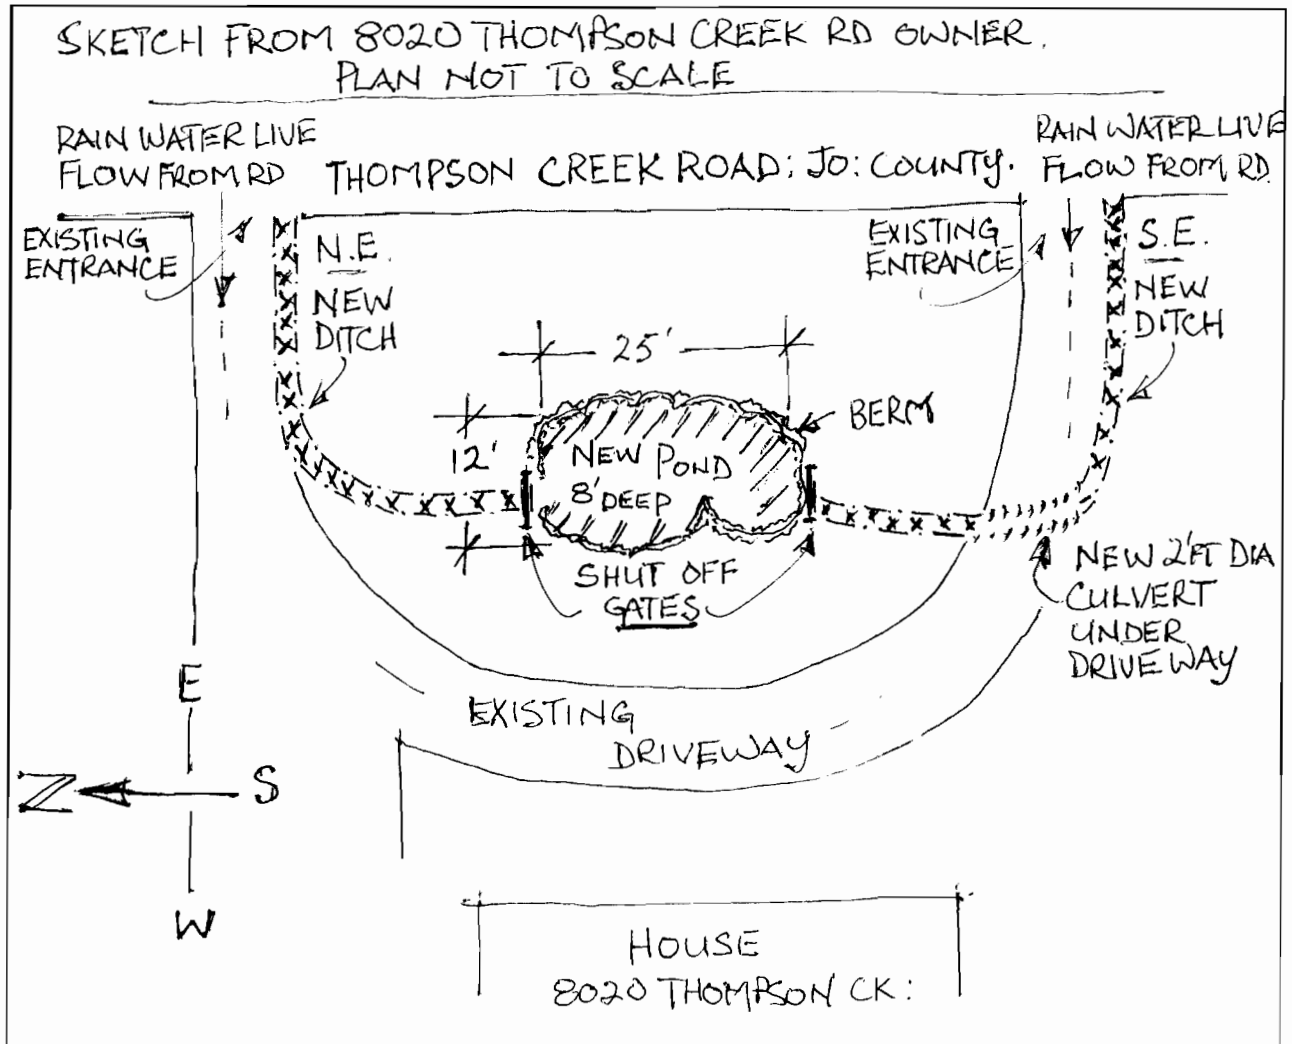 SKETCH FROM 8020 THOMPSON CREEK RD OWNER.
PLAN NOT TO SCALE
RAIN WATER LIVE
FLOW FROM RD
THOMPSON CREEK ROAD: JO: COUNTY.
RAIN WATER LIVE
FLOW FROM RD.
EXISTING
ENTRANCE
N.E.
NEW
DITCH
EXISTING
ENTRANCE
S.E.
NEW
DITCH
25'
BERM
12'
NEW POND
8' DEEP
SHUT OFF
GATES
NEW 2'FT DIA
CULVERT
UNDER
DRIVEWAY
EXISTING
DRIVEWAY
E
N
S
W
HOUSE
8020 THOMPSON CK: